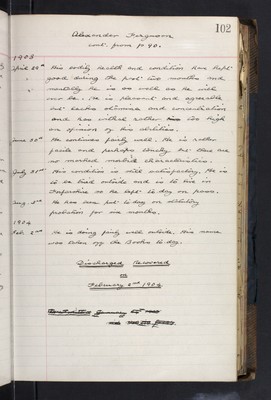 102
Alexander Ferguson
cont. from p. 90.
1903
April 22nd His bodily health and condition have kept
good during the past two months and
mentally he is as well as he will
ever be. He is pleasant and agreeable
but lacks stamina and concentration
and has withal rather too high
an opinion of his abilities.
June 30th He continues fairly well. He is rather
facile and perhaps lonely but there are
no marked morbid characteristics.
July 31st His condition is still satisfactory. He is
to be tried outside and is to live in
as he left to day on pass.
Aug. 3rd He has been put to day on statutory
probation for six months.
1904
Feb. 2nd He is doing fairly well outside. His name
was taken off the Books to day.
Discharged Recovered
on
February 2nd 1904